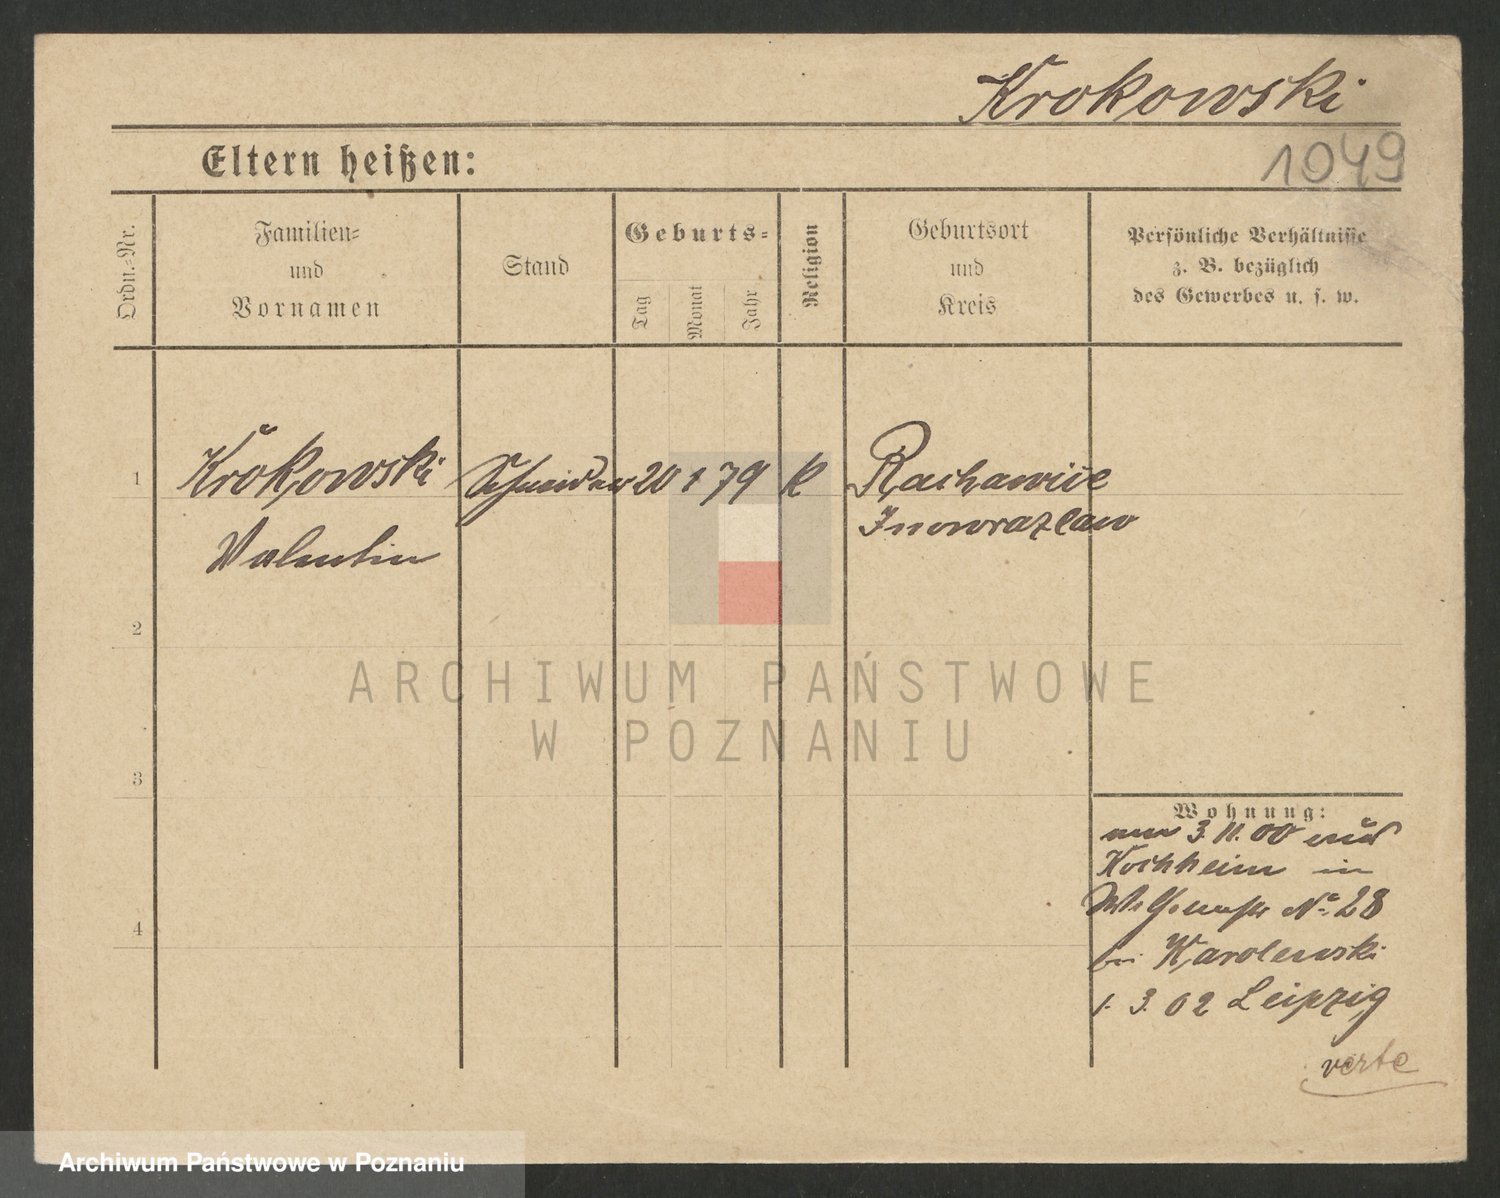 Krokowski
1049
Eltern heißen:
Ordn.-Nr.
Familien-
und
Vornamen
Stand
Geburts-
Tag
Monat
Jahr
Religion
Geburtsort
und
Kreis
Persönliche Verhältnisse
z. B. bezüglich
des Gewerbes u. s. w.
1
Krokowski Schneider 20 1 79 K Rachawice
Valentin Inowrazlaw
2
ARCHIWUM PAŃSTWOWE
W POZNANIU
3
Wohnung:
3. 11. 00 aus
Hochheim in
No 28
4
bei Karolewski
1. 3. 02 Leipzig
verte
Archiwum Państwowe w Poznaniu